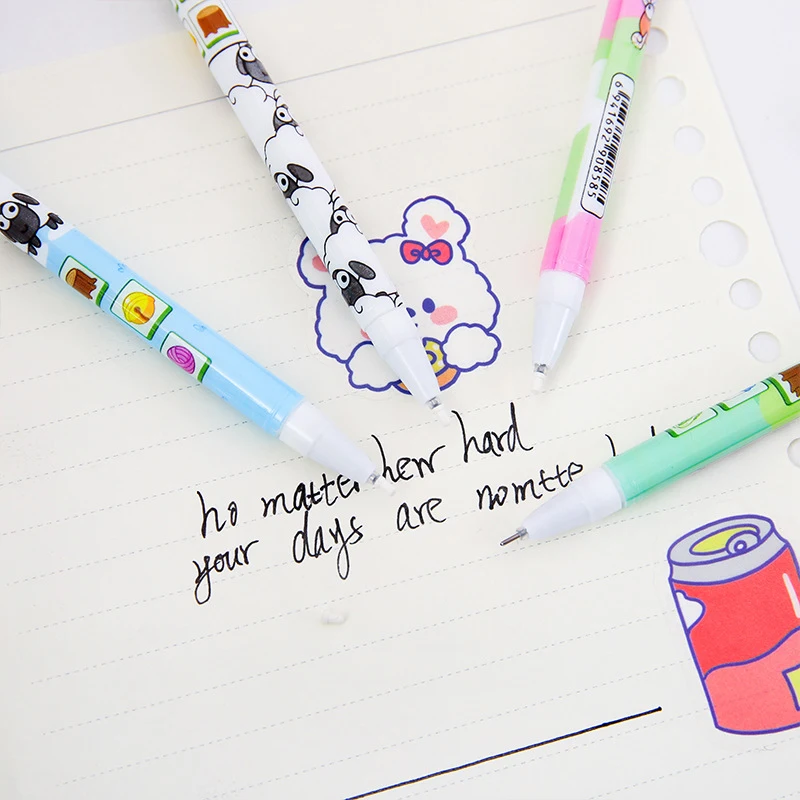 6941692908585
ho matter herr hard
your days are nomtte